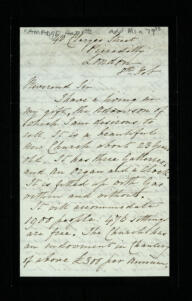 Clarges Street
Piccadilly
London
Reverend Sir
I have a living in
my gift, the Advowson of
which I am desirous to
sell. It is a beautiful
New Church about 23 years
old. It has three Galleries
and an Organ and a Clock
It is fitted up with Gas
within and without.
It will accommodate
1900 people. 476 sittings
are free. The Church has
an endowment in Chancery
of above £300 per annum